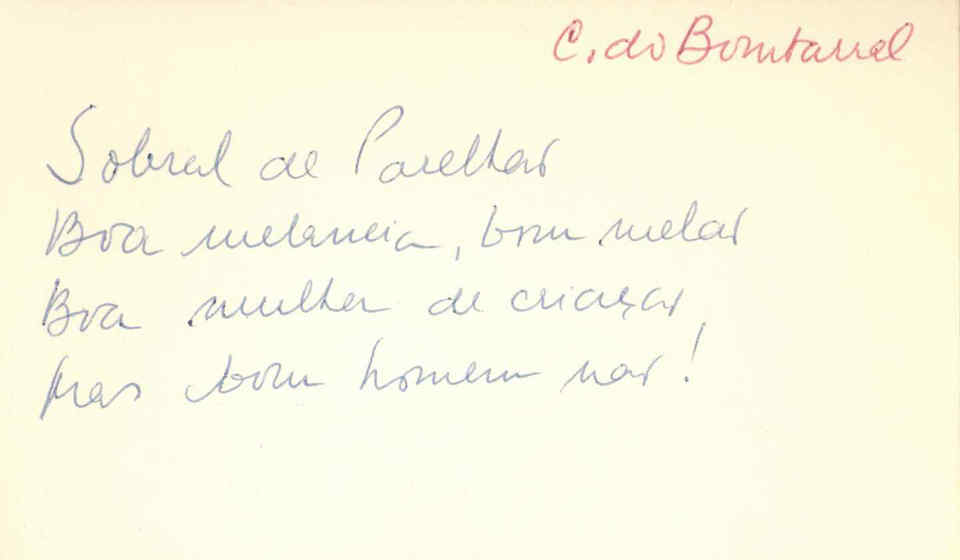 C. do Bombarral
Sobral de Parelhão
Boa melancia, bom melão
Boa mulher de criação,
Mas bom homem não!